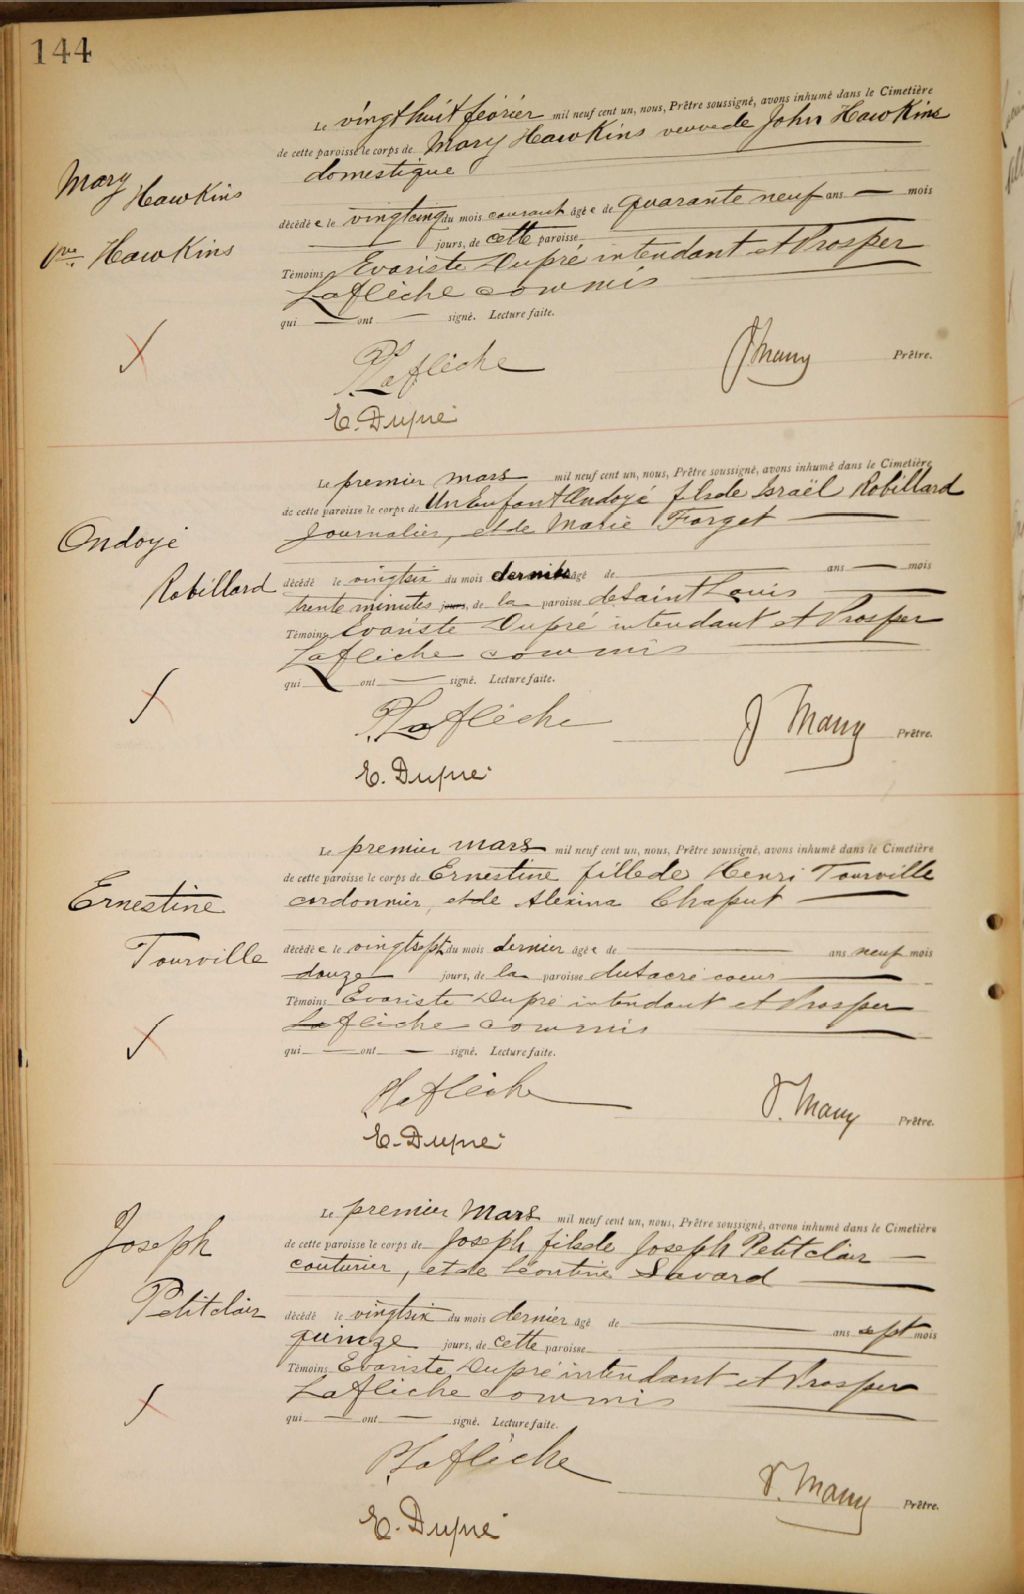 144
Mary
Hawkins
Vve. Hawkins
Le vingthuit février mil neuf cent un, nous, Prêtre soussigné, avons inhumé dans le Cimetière
de cette paroisse le corps de Mary Hawkins veuve de John Hawkins
domestique
décédée le vingtcinq du mois courant âgée de quarante neuf ans — mois
— jours, de cette paroisse
Témoins Evariste Dupré intendant et Prosper
Laflèche commis
qui — ont — signé. Lecture faite.
P. Laflèche
J Many Prêtre.
E. Dupré
Ondoyé
Robillard
Le premier mars mil neuf cent un, nous, Prêtre soussigné, avons inhumé dans le Cimetière
de cette paroisse le corps de Un Enfant Ondoyé fils de Israël Robillard
journalier, et de Marie Forget —
décédé le vingtsix du mois dernier âgé de — ans — mois
trente minutes jours, de la paroisse de Saint Louis —
Témoins Evariste Dupré intendant et Prosper
Laflèche commis —
qui — ont — signé. Lecture faite.
P. Laflèche
J Many Prêtre.
E. Dupré
Ernestine
Tourville
Le premier mars mil neuf cent un, nous, Prêtre soussigné, avons inhumé dans le Cimetière
de cette paroisse le corps de Ernestine fille de Henri Tourville
cordonnier, et de Alexina Chaput —
décédée le vingtsept du mois dernier âgée de — ans neuf mois
douze jours, de la paroisse du Sacré coeur —
Témoins Evariste Dupré intendant et Prosper
Laflèche commis —
qui — ont — signé. Lecture faite.
P. Laflèche
J. Many Prêtre.
E. Dupré
Joseph
Petitclair
Le premier Mars mil neuf cent un, nous, Prêtre soussigné, avons inhumé dans le Cimetière
de cette paroisse le corps de Joseph fils de Joseph Petitclair —
couturier, et de Léontine Savard —
décédé le vingtsix du mois dernier âgé de — ans sept mois
quinze jours, de cette paroisse —
Témoins Evariste Dupré intendant et Prosper
Laflèche commis —
qui — ont — signé. Lecture faite.
P. Laflèche
J. Many Prêtre.
E. Dupré